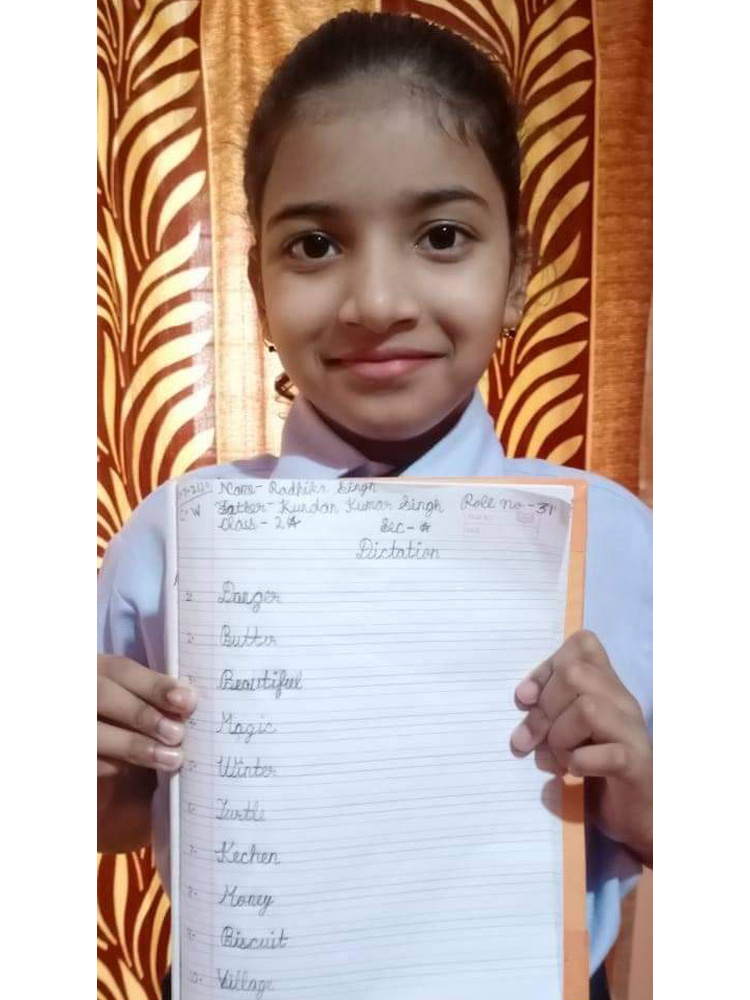 Name- Radhika Singh
C.W Father- Kundan Kumar Singh Roll no -31
Class - 2 A Sec- A
Dictation
1. Danger
2. Butter
3. Beautiful
4. Magic
5. Winter
6. Turtle
7. Kechen
8. Money
9. Biscuit
10. Village